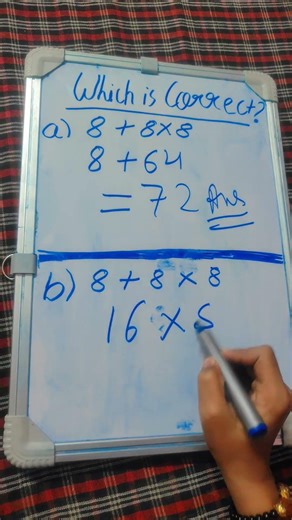 Which is Correct?
a) 8 + 8×8
8 + 64
= 72 Ans
b) 8 + 8 × 8
16 ×